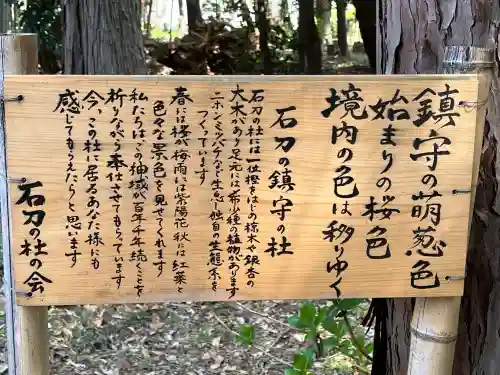 鎮守の萌葱色
始まりの桜色
境内の色は移りゆく
石刀の鎮守の杜
石刀の杜には一位樫をはじめ椋木や銀杏の
大木があり足元には希少種の植物があります
ニホンミツバチなども生息し独自の生態系を
つくっています
春には桜が梅雨には紫陽花秋には紅葉と
色々な景色を見せてくれます
私たちはこの神域が百年千年続くことを
祈りながら奉仕させてもらっています
今、この杜に居るあなた様にも
感じてもらえたらと思います
石刀の杜の会